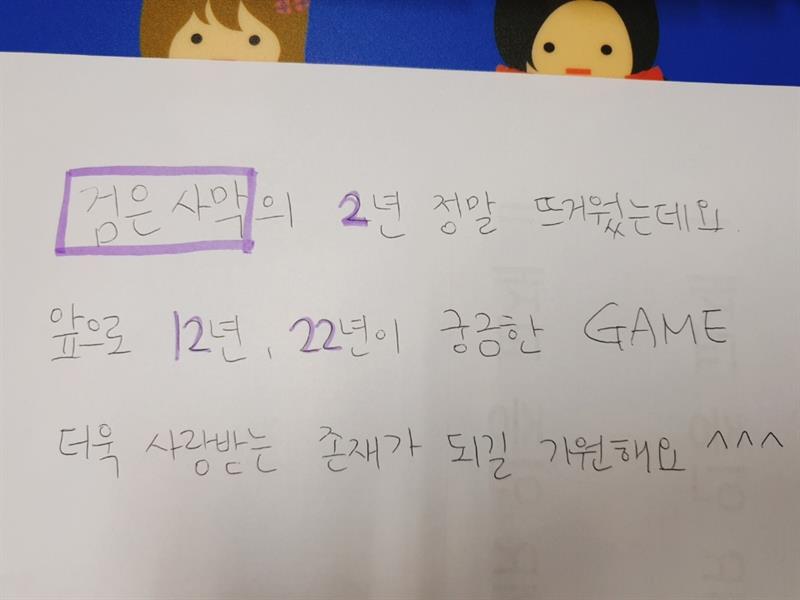 검은사막의 2년 정말 뜨거웠는데요.
앞으로 12년, 22년이 궁금한 GAME
더욱 사랑받는 존재가 되길 기원해요 ^^^